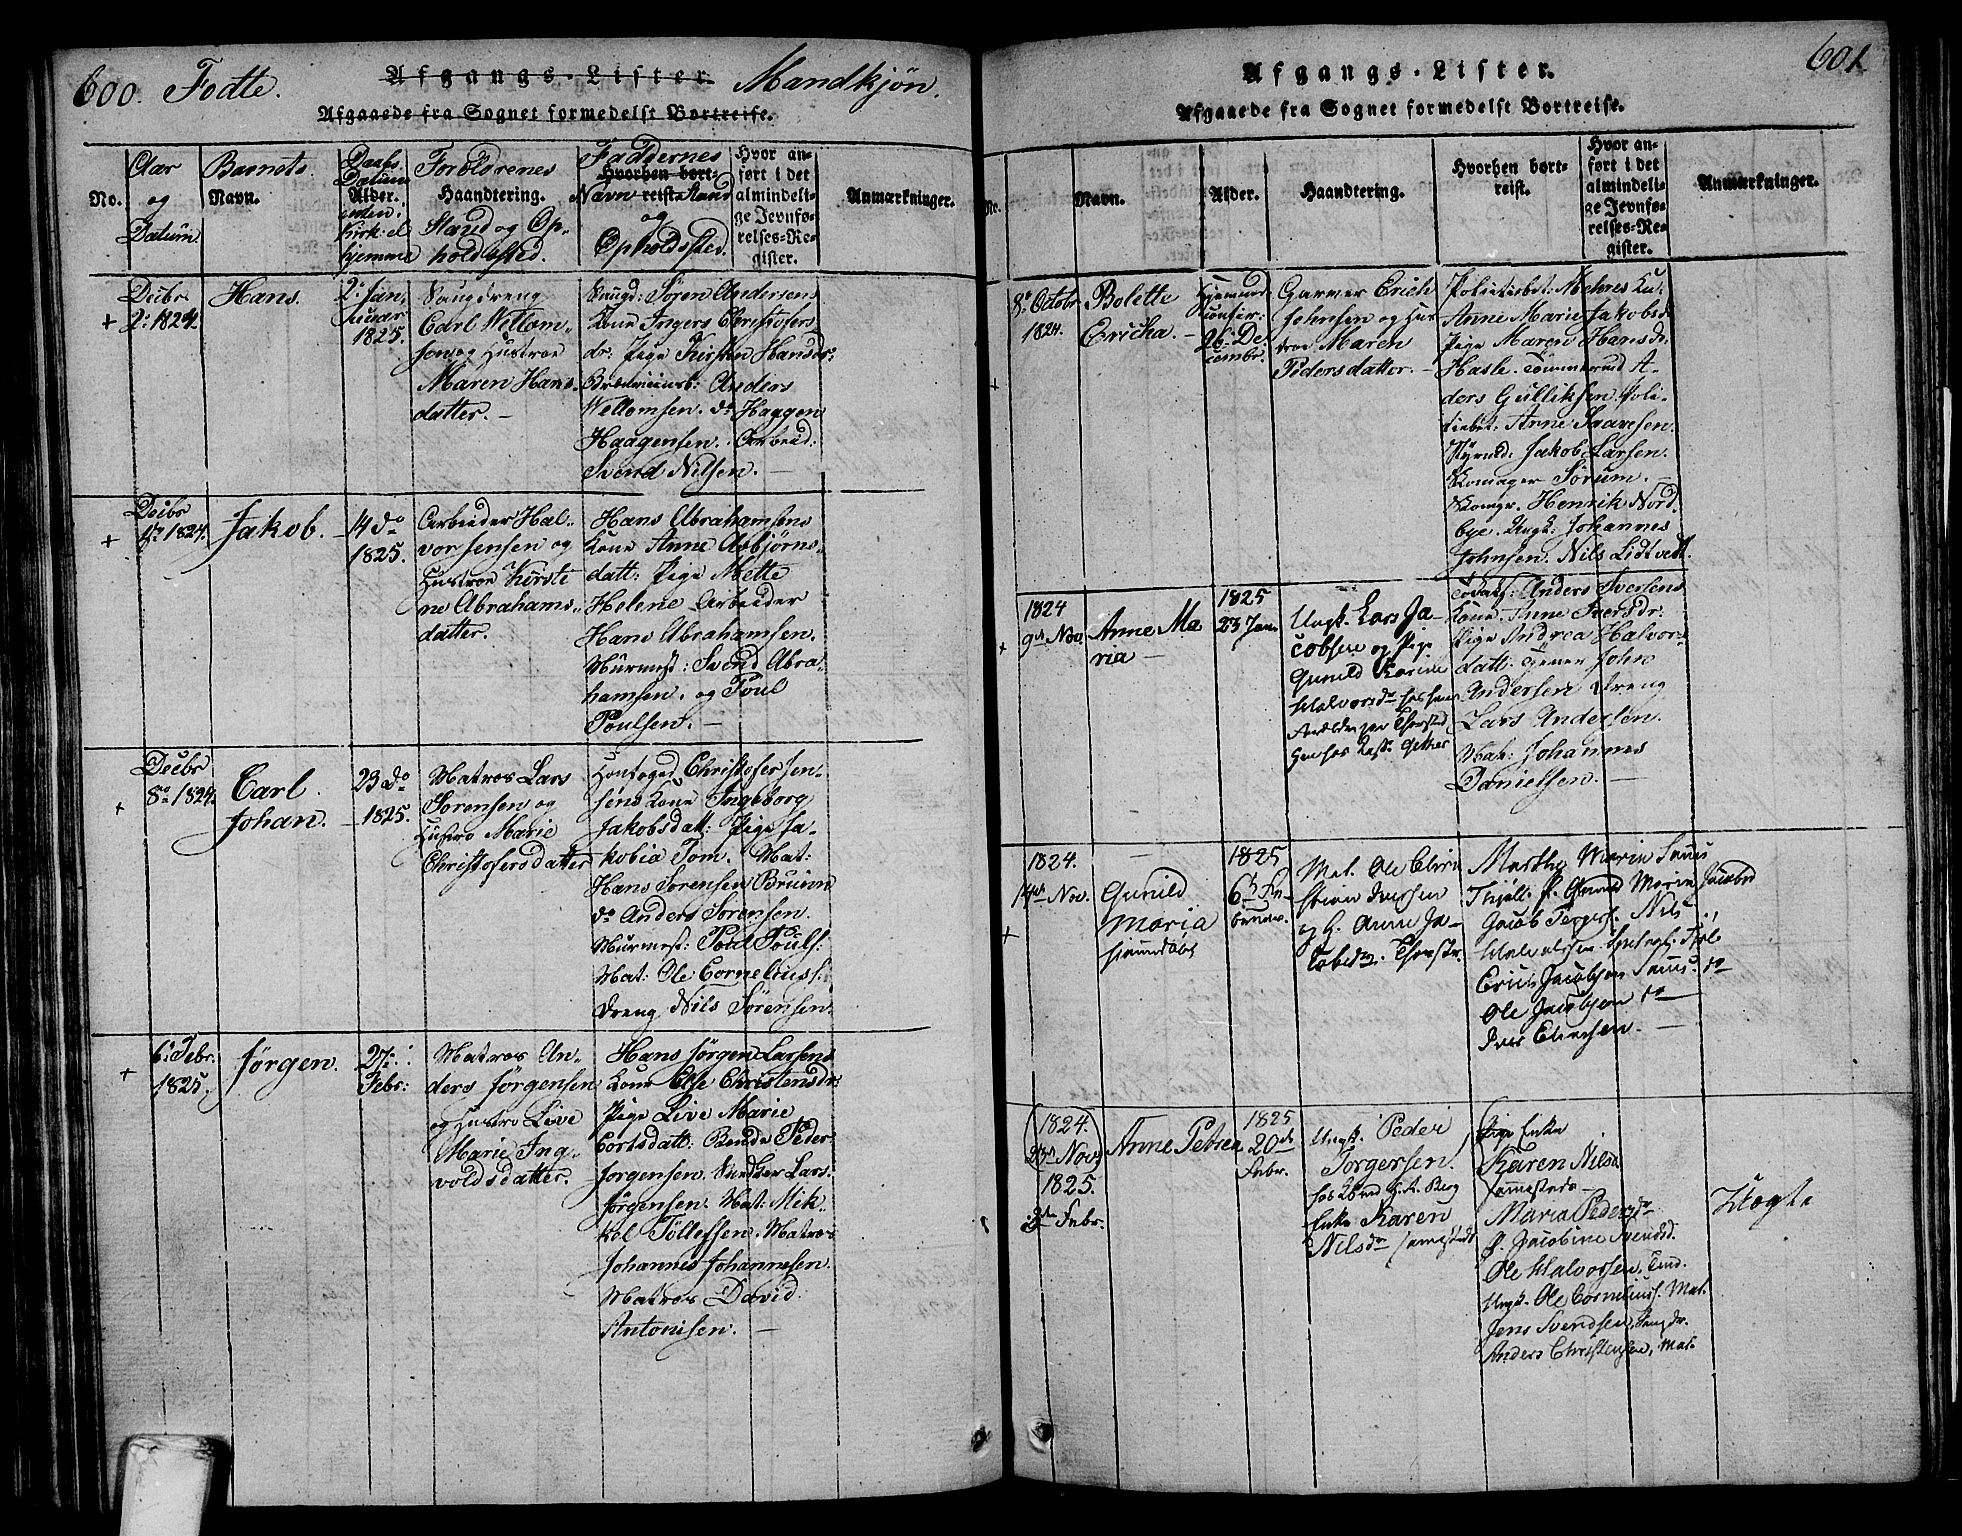 600. Fødte. Afgangs-Lister. Mandkjøn.
Afgaaede fra Sognet formedelst Bortreise.
No.
Aar
og
Datum
Barnets
Navn.
Daabs
Datum
Alder.
enten i
Kirk: el
hjemme
Forældrenes
Haandtering.
Stand og Op-
holdssted.
Faddernes
Hvorhen bort-
Navn reist. Stand
og
Opholdssted.
Hvor an-
ført i det
almindeli-
ge Jevnfø-
relses-Re-
gister.
Anmærkninger.
+
Decbr
2: 1824.
Hans.
2: Jan,
nuar
1825.
Saugdreng
Carl Wellom-
sen og Hustroe
Maren Hans-
datter. -
Saugd: Søren Andersens
Kone Ingers Christofers
dr. Pige Kirsten Hansdr:
Brændviinsb: Anders
Wellomsen. do Haagen
Haagensen. Arbeid:
Svend Nilsen. -
+
Decbr
17: 1824.
Jakob. -
14 do
1825.
Arbeider Hal-
vor Jensen og
Hustroe Kirste
ne Abrahams-
datter.
Hans Abrahamsens
Kone Anne Asbjørns-
datt: Pige Mette
Helene Arbeider
Hans Abrahamsen.
Muurmest: Svend Abra-
hamsen. og Poul
Poulsen. -
+
Decbr
8: 1824.
Carl
Johan. -
23 do
1825.
Matros Lars
Sørensen og
Hustro Marie
Christofersdatter
Christofersen-
sens Kone Ingeborg
Jakobsdatt: Pige Ja-
kobia Tom. Mat:
Hans Sørensen Bruun
do Anders Sørensen.
Muurmest: Poul Pouls:
Mat: Ole Corneliuss:
Dreng Nils Sørensen.
+
6: Febr.
1825.
Jørgen.
27:
Febr:
Matros An-
ders Jørgensen
og Hustro Live
Marie Ing-
voldsdatter.
Hans Jørgen Larsens
Kone Else Christensdr:
Pige Live Marie
Cortsdatt: Bonde Peder
Jørgensen. Lars
Jørgensen. Mat: Mik-
kel Tollefsen. Matros
Johannes Johannesen.
Matros David
Antonisen. -
601
Afgangs-Lister.
Afgaaede fra Sognet formedelst Bortreise.
No.
Navn.
Alder.
Haandtering.
Hvorhen bort-
reist.
Hvor an-
ført i det
almindeli-
ge Jevnfø-
relses-Re-
gister.
Anmærkninger.
+
8: Octobr
1824.
Bolette
Ericka. -
Hjemmed:
26: De-
cembr.
Garver Erich
Johnsen og Hus
troe Maren
Pedersdatter. -
Politiebet: Mehres Ko:
Anne Marie Jakobsd
Pige Maren Hansdr.
Hasle. Tømmermd A-
ders Gulliksen Poli-
tiebet: Arne Svavesen.
Jakob Larsen.
Skomager Sørum. -
Skomgr. Henrik Nord
bye. Ungk: Johannes
Johnsen. Nils Lidtvedt.
+
1824
9de Nov
Anne Ma
ria -
1825
23 Jan.
Ungk. Lars Ja-
cobsen og Pige
Gunild Karine
Halvorsdr
Anders Iversens
Kone. Anne Iversdr:
Pige Andrea Halvors-
datt: John
Andersen Dreng
Lars Andersen.
Johannes
Danielsen. -
+
1824.
14de Nov.
Gunild
Maria
hjemmedøbt
1825
6te Fe-
bruar.
Mat. Ole Chri
stian Iversen
og H. Anne Ja-
cobsdr.
Marthe Marie
P. Gunild Maria Jacobsd
Jacob Nils
Halvorsen
Erich Jacobsen do
Ole Jacobsen do -
Iver Eliasen. -
1824.
23de Nov.
1825.
3de Febr.
Anne Petrea
1825
20de
Febr.
Ungk. Peder
Jørgensen.
Enke Karen
Nilsdr
Pige Enke
Karen Nilsd
Maria Pedersdr
P. Jacobine Svendsd.
Ole Halvorsen.
Ungk. Ole Corneliuss. Mat.
Jens Svendsen,
Anders Christensen, Mat.
Uægte